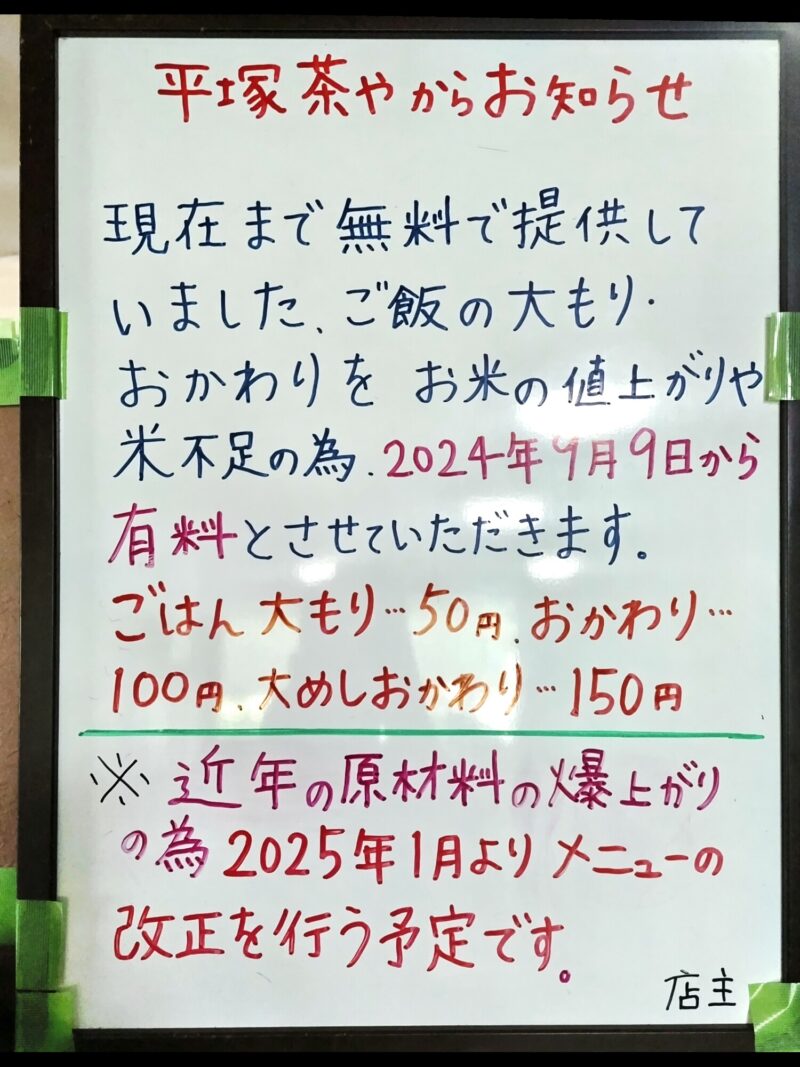 平塚茶やからお知らせ
現在まで無料で提供して
いました、ご飯の大もり・
おかわりを お米の値上がりや
米不足の為、2024年9月9日から
有料とさせていただきます。
ごはん 大もり…50円、おかわり…
100円、大めしおかわり…150円
※ 近年の原材料の爆上がり
の為 2025年1月よりメニューの
改正を行う予定です。
店主